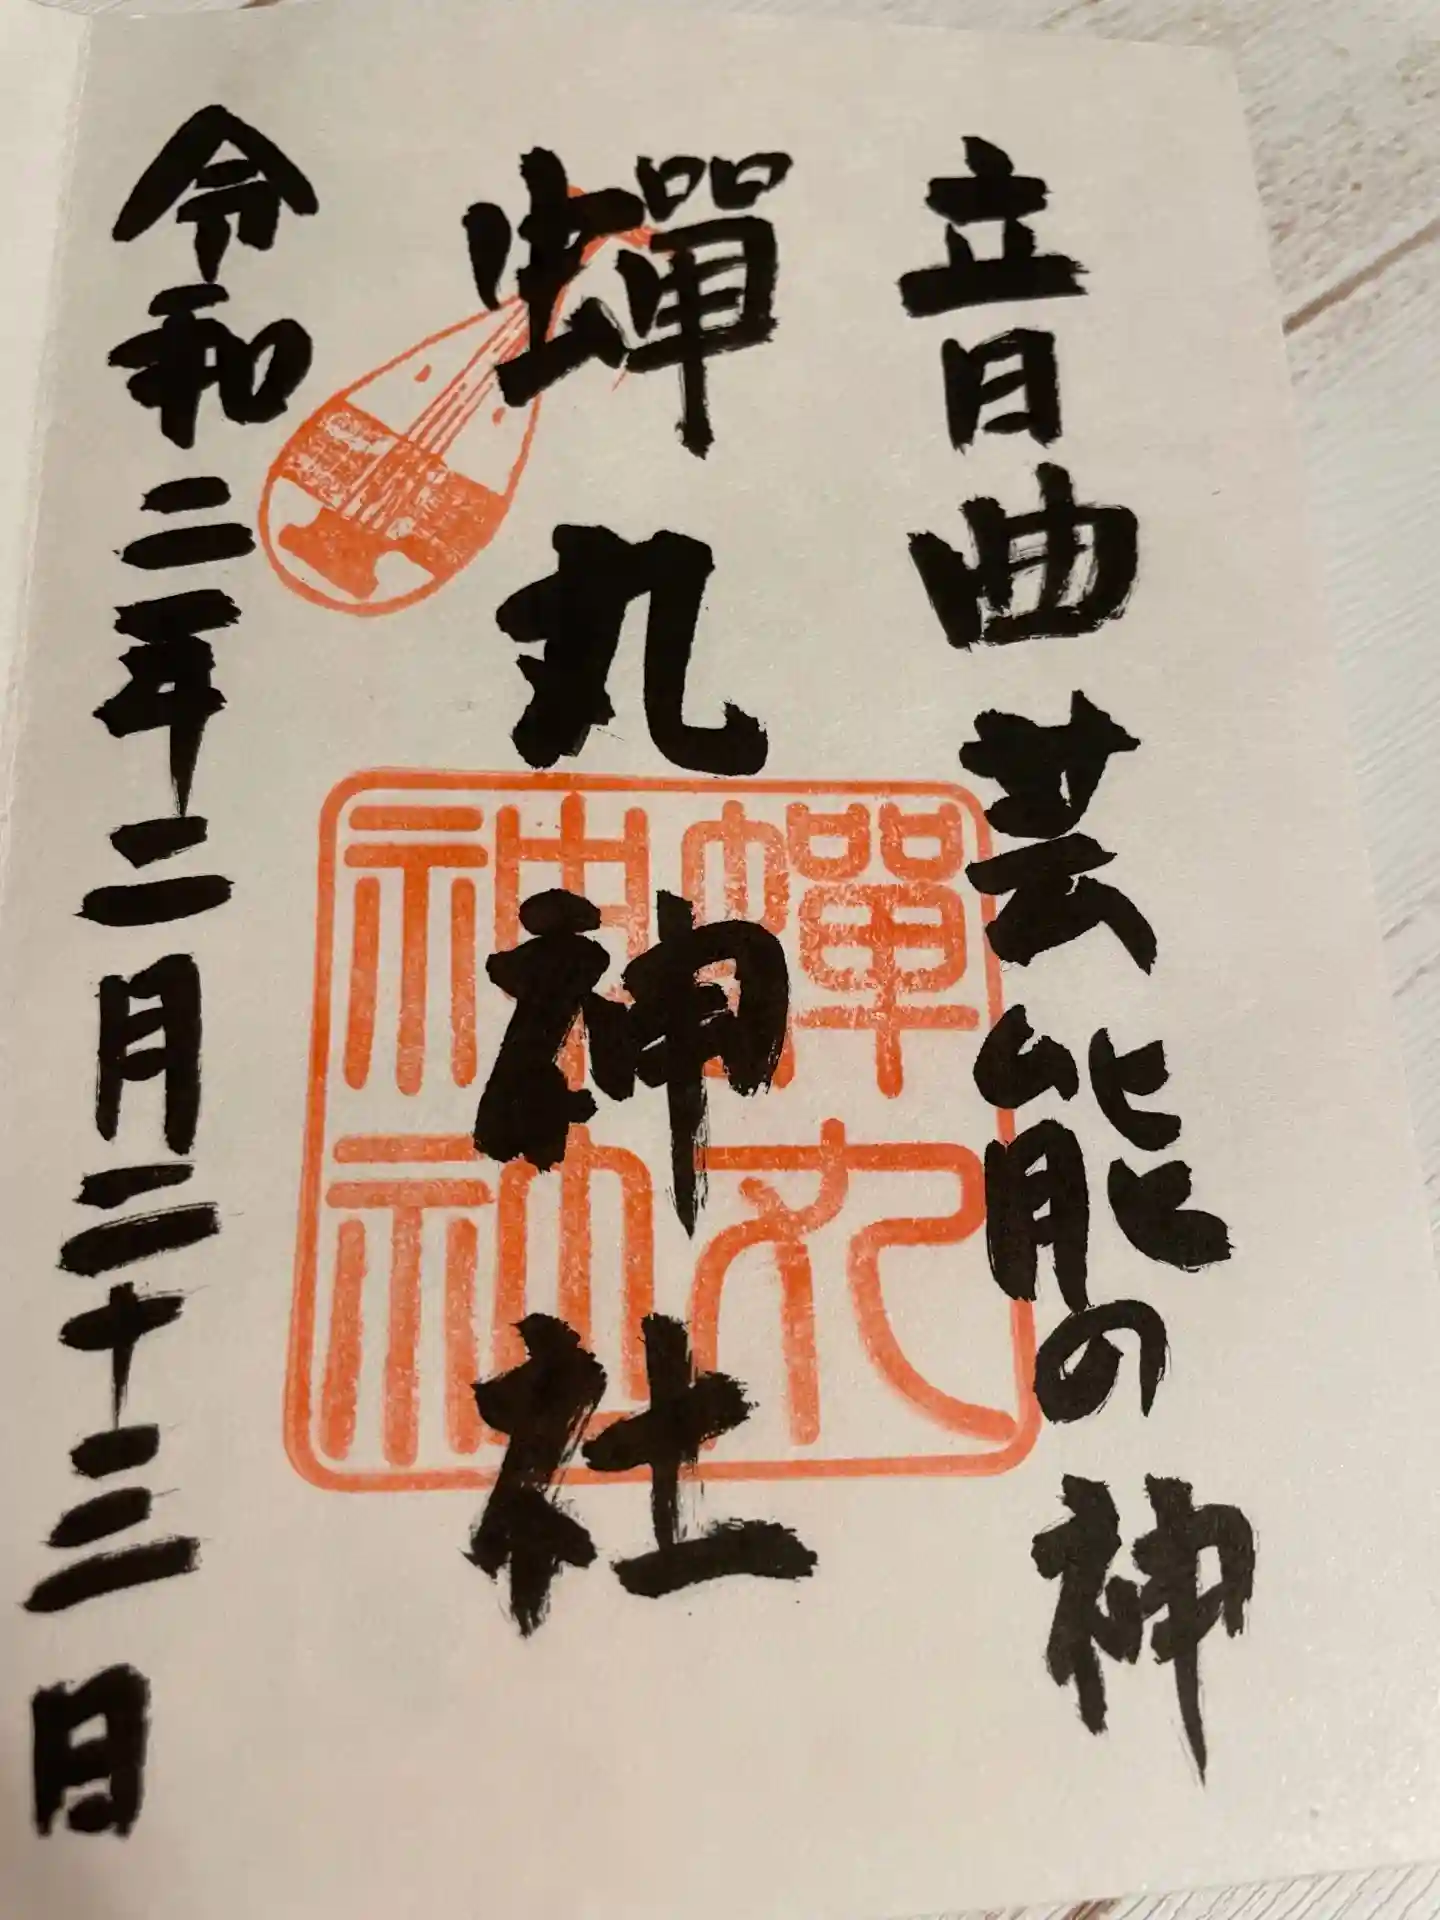 音曲芸能の神
蟬丸神社
蟬丸
神社
令和二年二月二十三日